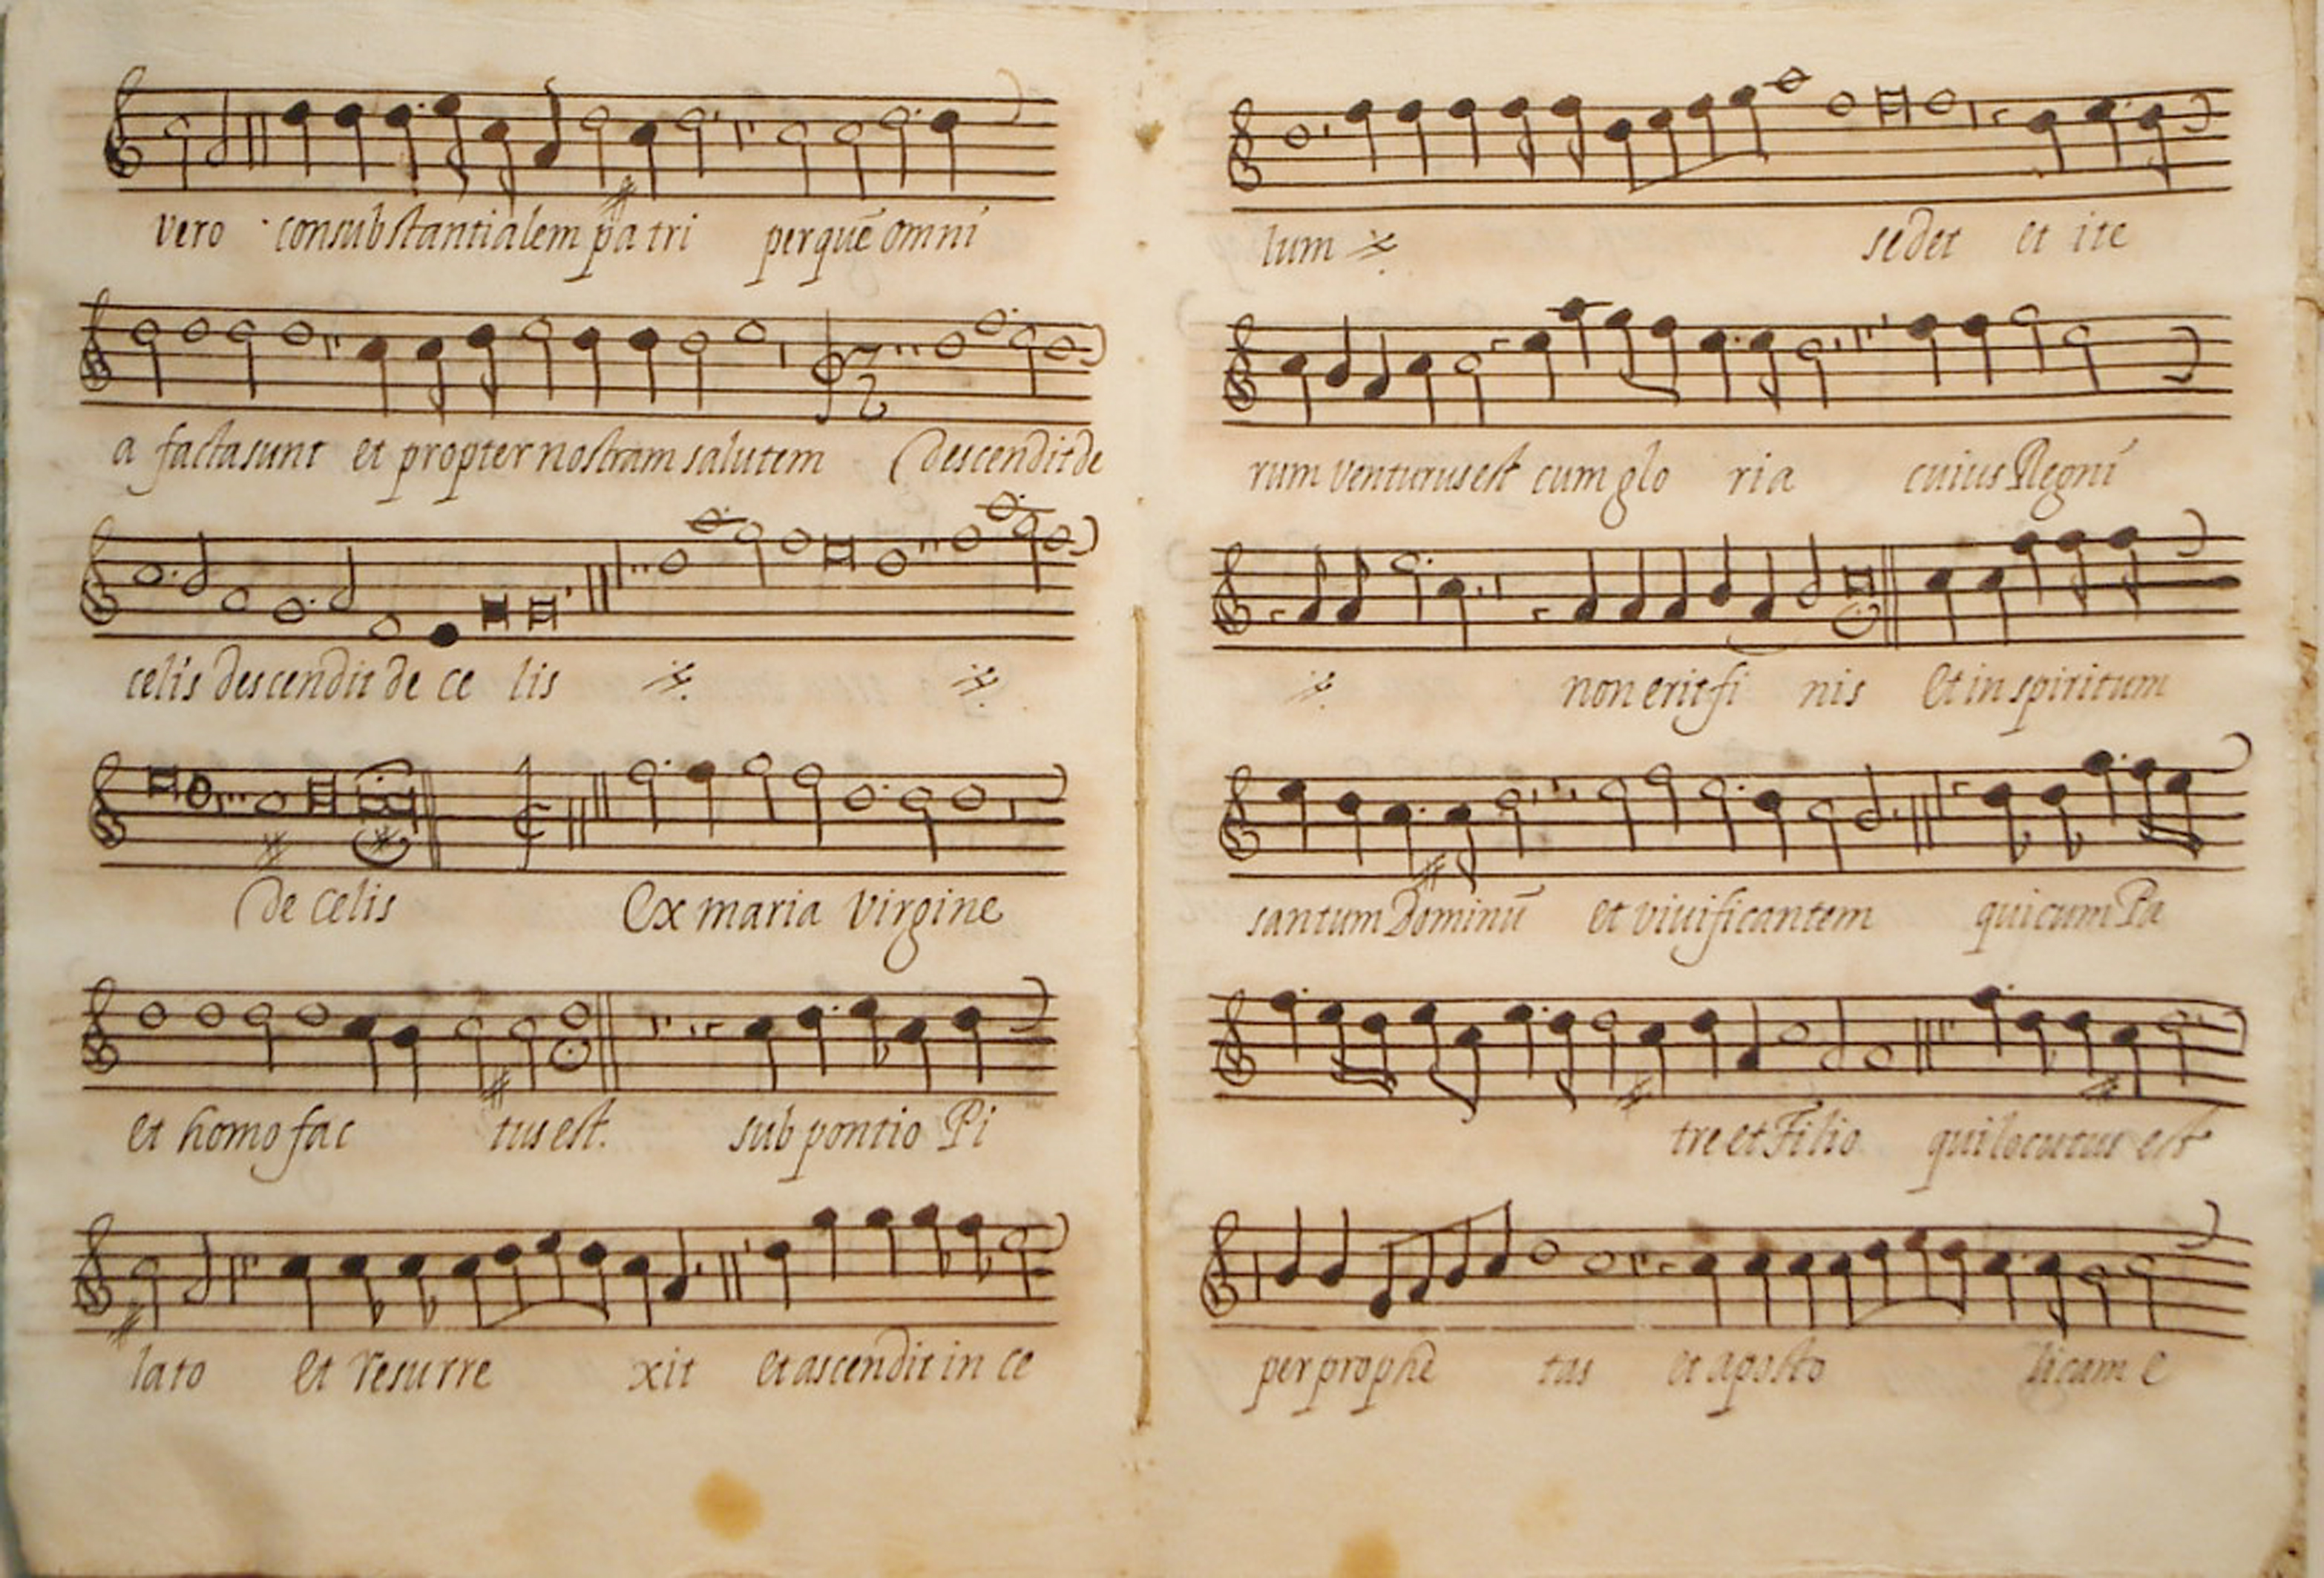 vero consubstantialem patri perquē omni
a facta sunt et propter nostram salutem Descendit de
celis descendit de ce lis ij. ij.
De celis Ex maria virgine
et homo fac tus est. sub pontio Pi
lato et resurre xit et ascendit in ce
lum ij. sedet et ite
rum venturus est cum glo ria cuius Regni
ij. non erit fi nis Et in spiritum
santum Dominū et vivificantem qui cum Pa
tre et Filio qui locutus est
per prophe tas et aposto licam e